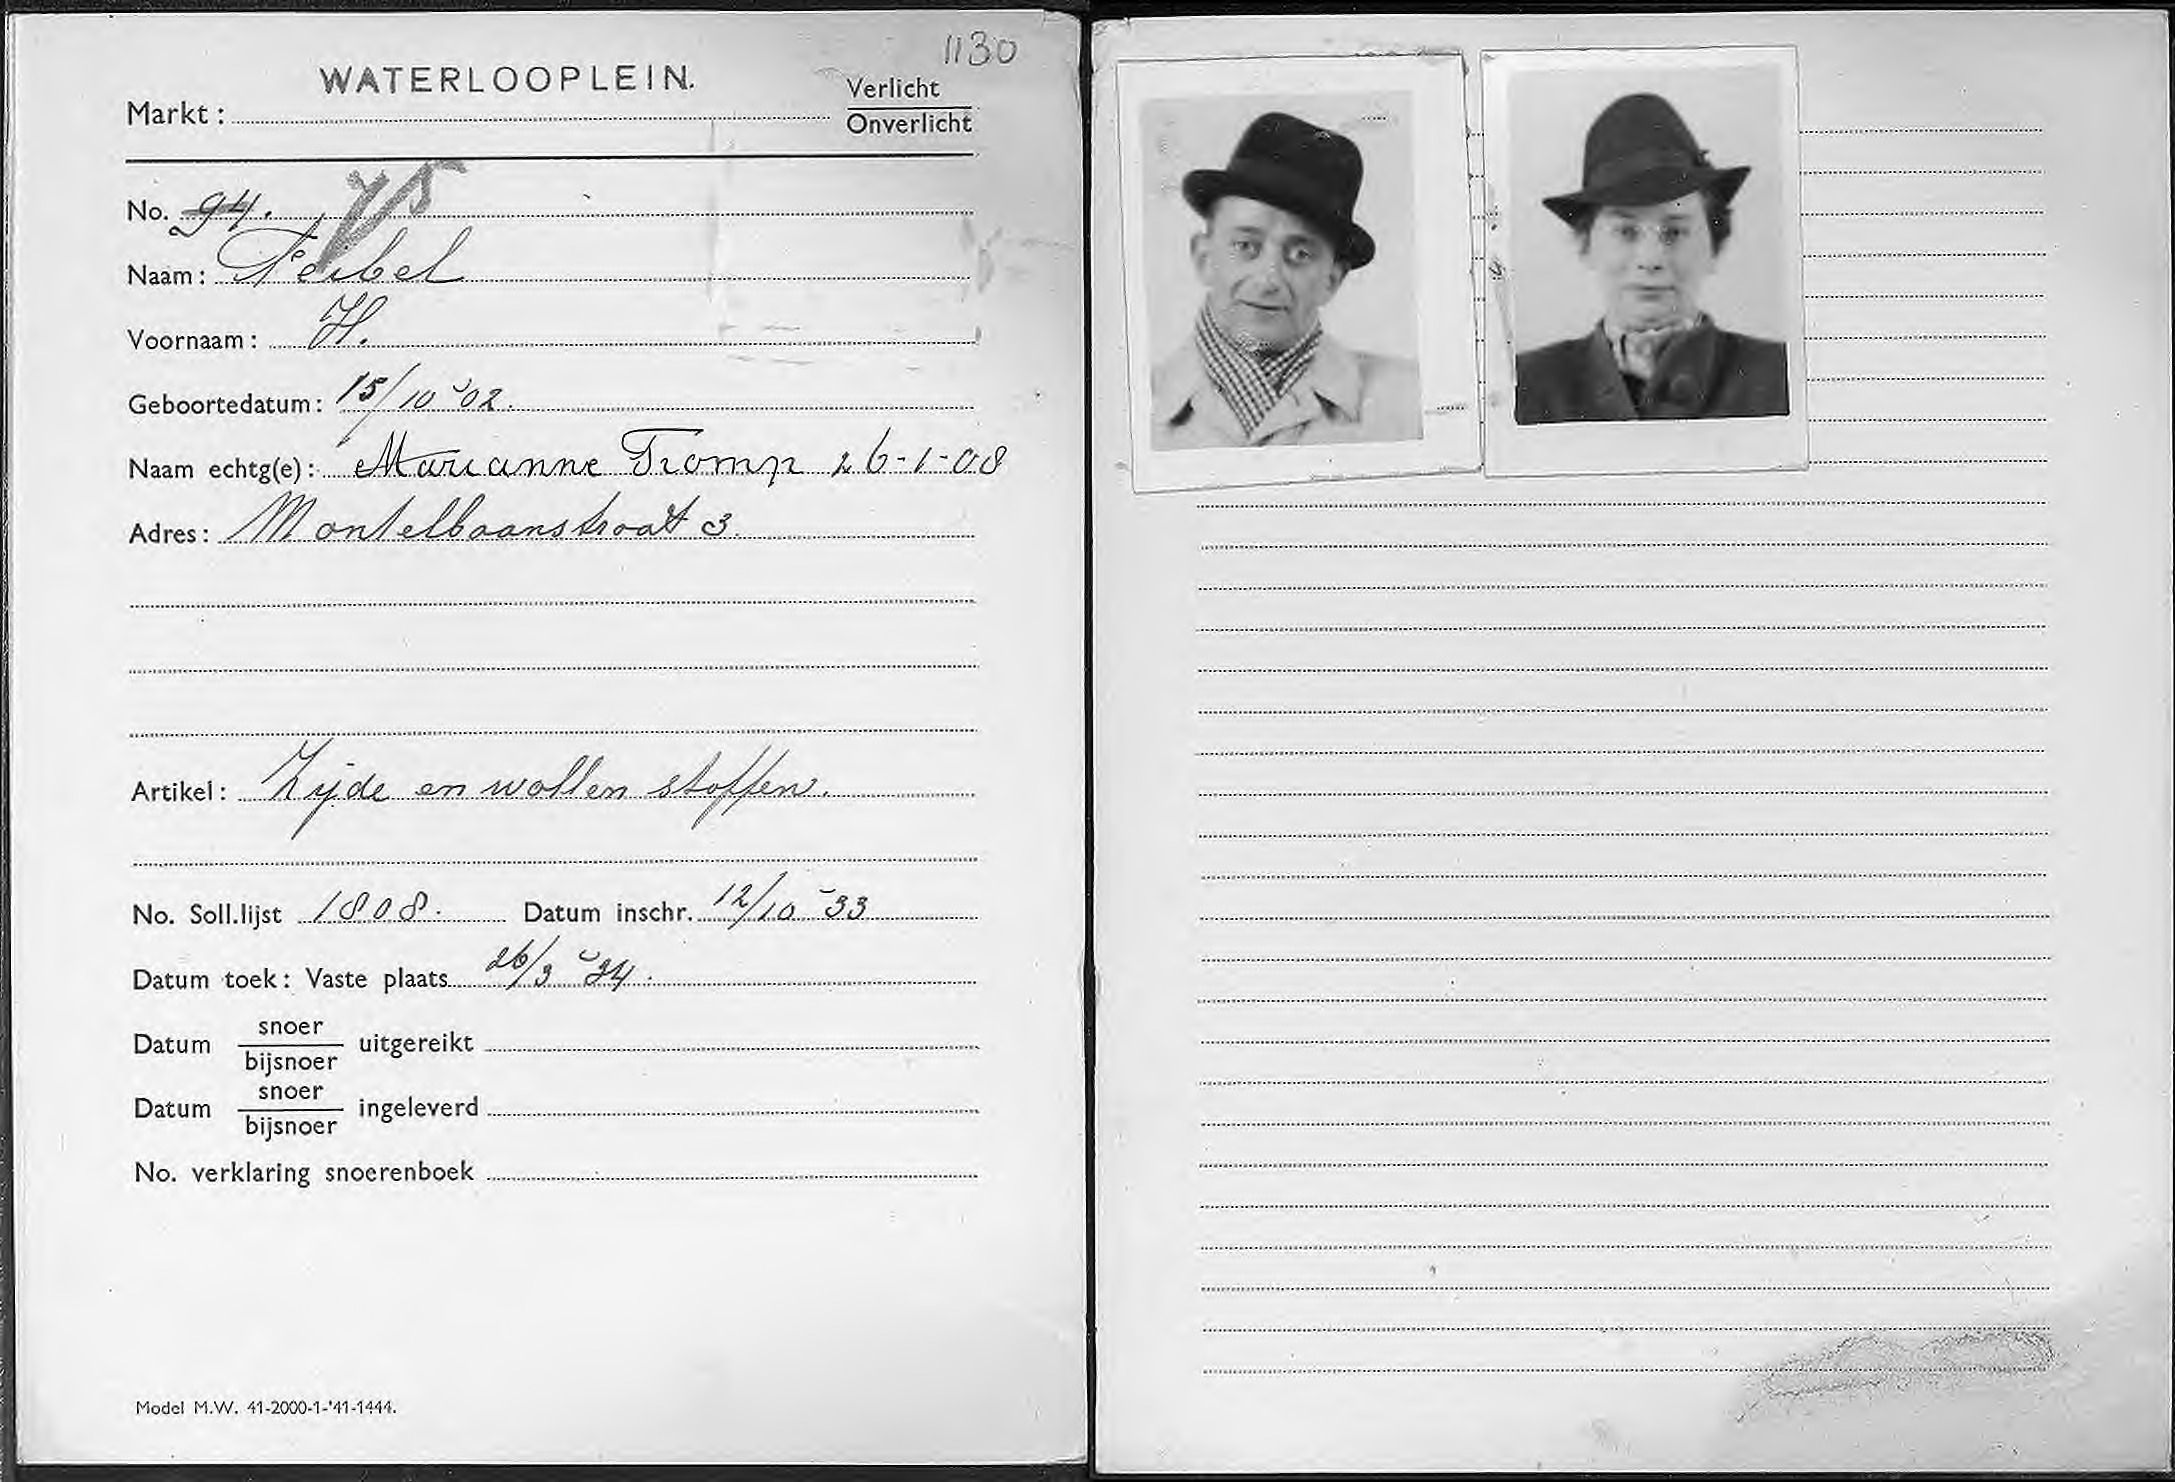 1130
WATERLOOPLEIN.
Markt:
Verlicht
Onverlicht
No. 94. 75
Naam: Feibel
Voornaam: H.
Geboortedatum: 15/10 '02.
Naam echtg(e): Marianne Tromp 26-1-08
Adres: Montelbaanstraat 3.
Artikel: Zijde en wollen stoffen.
No. Soll.lijst 1808. Datum inschr. 12/10 '33
Datum toek: Vaste plaats 26/3 '34.
Datum snoer/bijsnoer uitgereikt
Datum snoer/bijsnoer ingeleverd
No. verklaring snoerenboek
Model M.W. 41-2000-1-'41-1444.